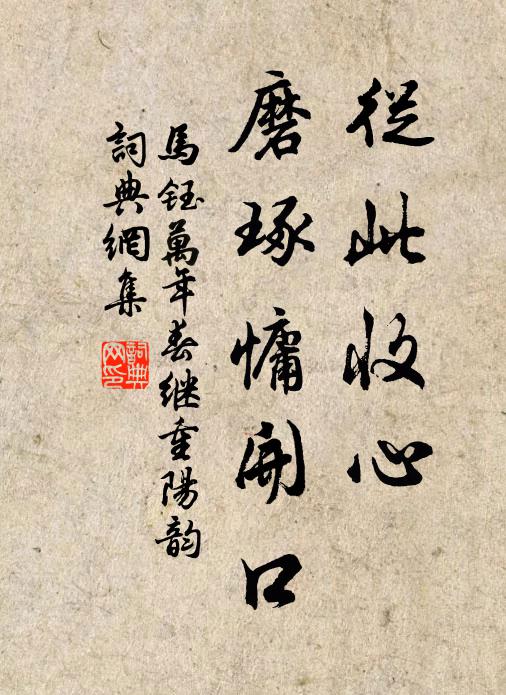 從此收心
磨琢慵開口
馬鈺萬年春继重陽韵
詞典網集
詞典網印